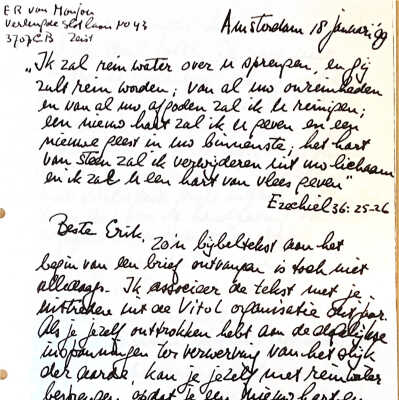 E R van Monjou
Verlengde Slotlaan no 43
3707CB Zeist
Amsterdam 18 januari '99
"Ik zal rein water over u sprengen, en gij
zult rein worden; van al uw onreinheden
en van al uw afgoden zal ik u reinigen;
een nieuw hart zal ik u geven en een
nieuwe geest in uw binnenste; het hart
van steen zal ik verwijderen uit uw lichaam
en ik zal u een hart van vlees geven"
Ezechiel 36: 25-26
Beste Erik,
zo'n bijbeltekst aan het
begin van een brief ontvangen is toch niet
alledaags. Ik associeer de tekst met je
uittreden uit de Vitol organisatie dit jaar.
Als je jezelf onttrokken hebt aan de dagelijkse
inspanningen ter verwerving van het slijk
der aarde, kan je jezelf met rein water
besprengen opdat je een nieuw hart en